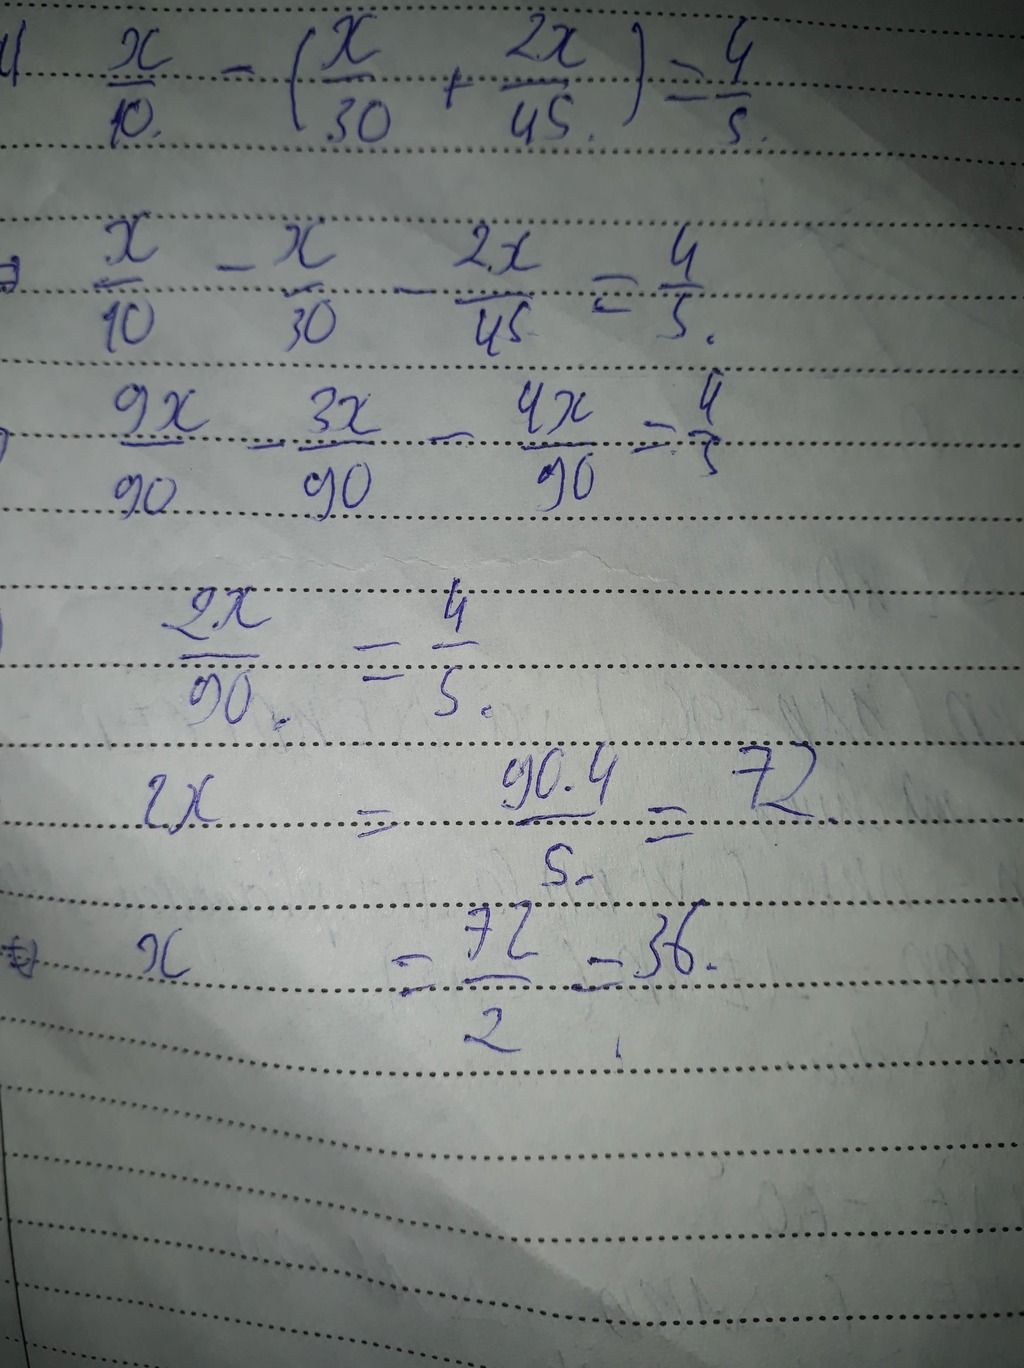 x/10. - (x/30 + 2x/45.) = 4/5.
⇒ x/10 - x/30 - 2x/45 = 4/5.
9x/90 - 3x/90 - 4x/90 = 4/5
2x/90. = 4/5.
2x = 90.4/5. = 72.
x = 72/2 = 36.